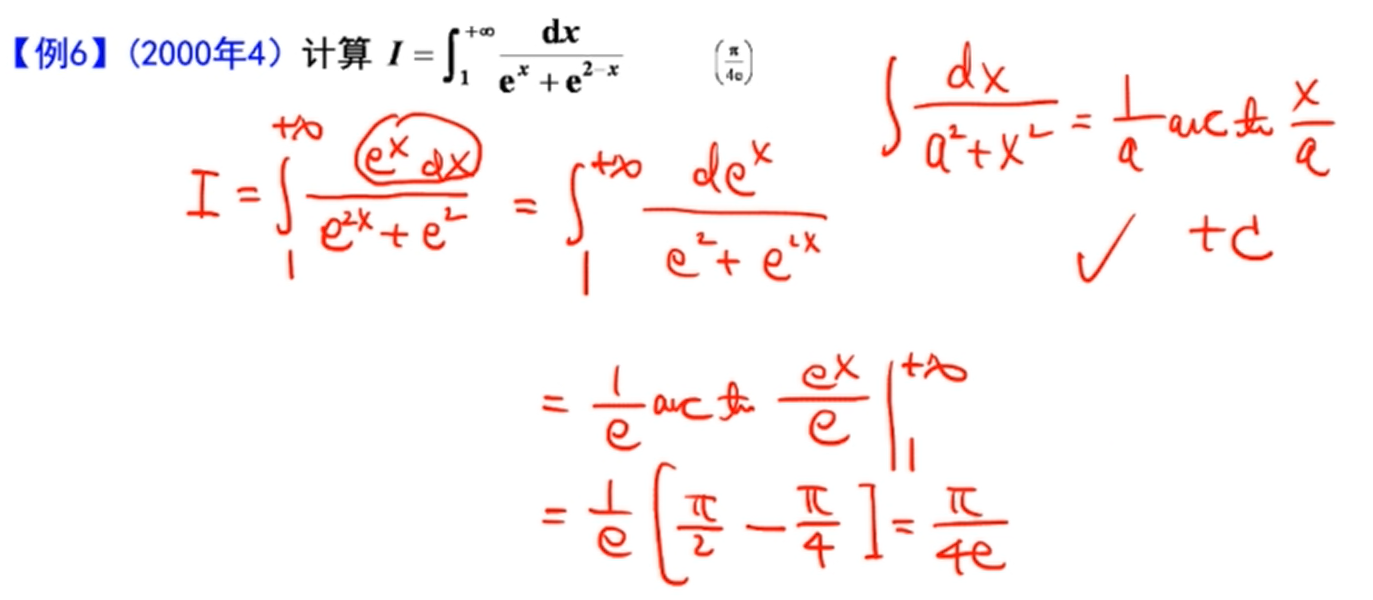 【例6】(2000年4) 计算 I = ∫₁^{+∞} dx / (e^x + e^{2-x}) (π/4e)
∫ dx / (a² + x²) = 1/a arc tan x/a
✓ +C
I = ∫₁^{+∞} e^x dx / (e^{2x} + e²) = ∫₁^{+∞} de^x / (e² + e^{2x})
= 1/e arc tan e^x/e |₁^{+∞}
= 1/e [π/2 − π/4] = π/4e